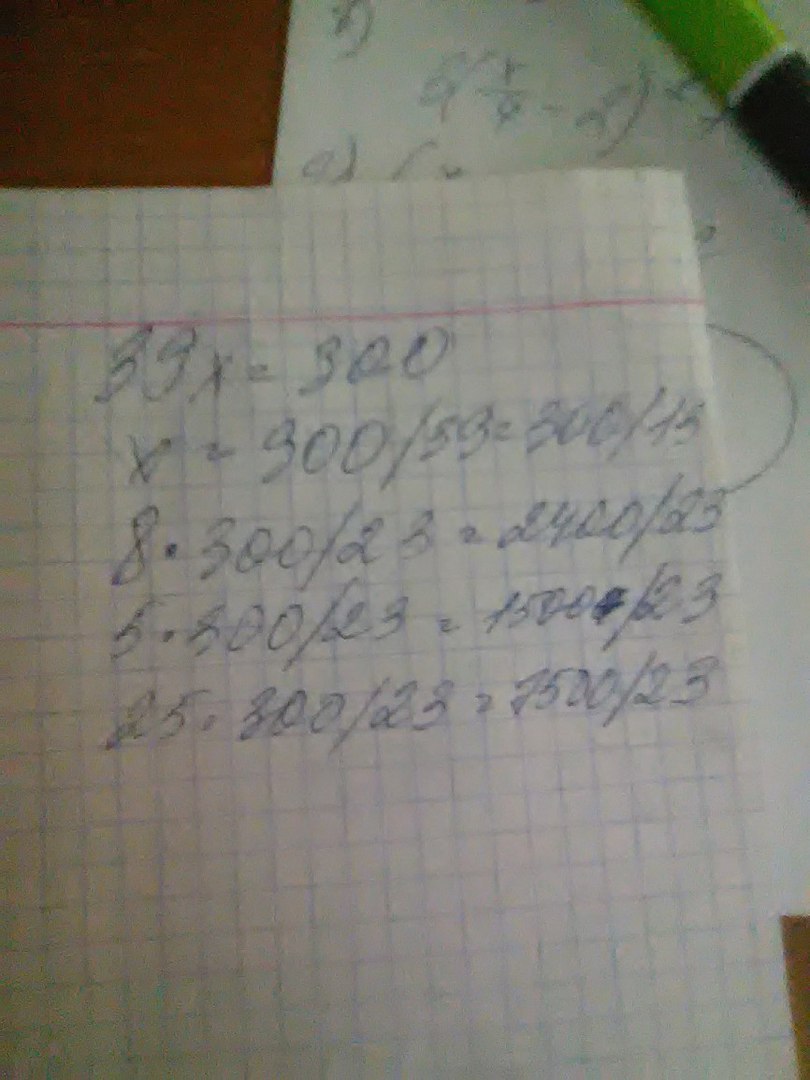 33x = 300
x = 300/53 = 300/13
8 · 300/23 = 2400/23
5 · 300/23 = 1500/23
25 · 300/23 = 7500/23